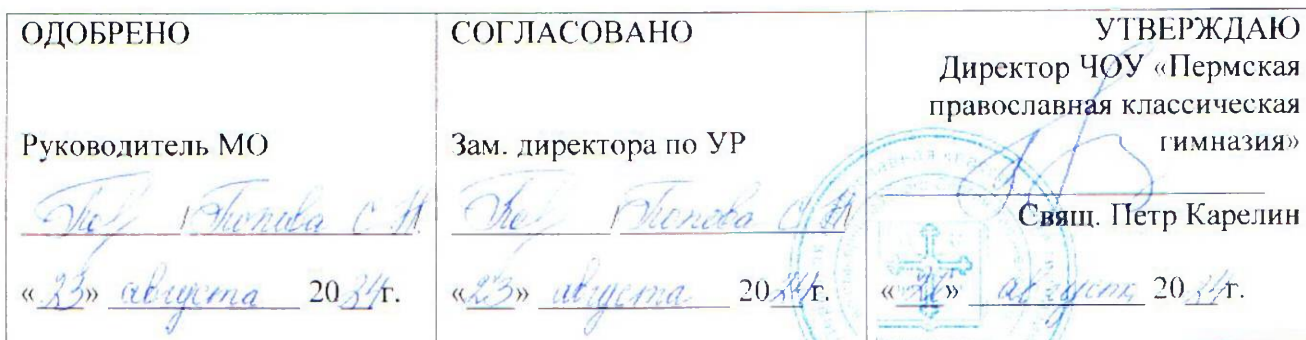 ОДОБРЕНО
Руководитель МО
Попова С.Н.
«23» августа 2024г.
СОГЛАСОВАНО
Зам. директора по УР
Попова С.Н.
«23» августа 2024г.
УТВЕРЖДАЮ
Директор ЧОУ «Пермская
православная классическая
гимназия»
Свящ. Петр Карелин
августа 2024г.